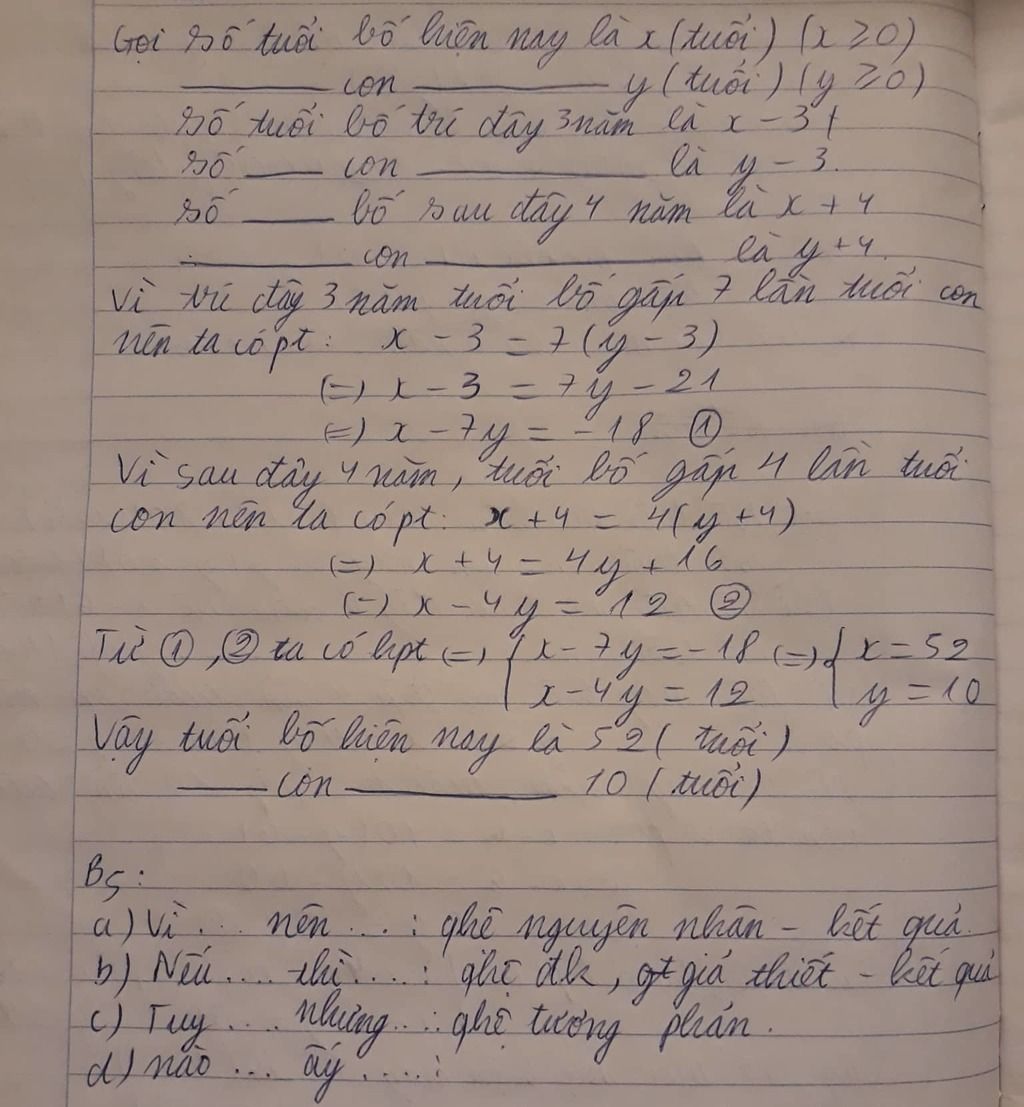 Gọi số tuổi bố hiện nay là x (tuổi) (x ≥ 0)
con y (tuổi) (y ≥ 0)
số tuổi bố trc đây 3 năm là x - 3
số con là y - 3.
số bố sau đây 4 năm là x + 4
con là y + 4.
Vì trc đây 3 năm tuổi bố gấp 7 lần tuổi con
nên ta có pt: x - 3 = 7(y - 3)
(=) x - 3 = 7y - 21
(=) x - 7y = -18 ①
Vì sau đây 4 năm, tuổi bố gấp 4 lần tuổi
con nên ta có pt: x + 4 = 4(y + 4)
(=) x + 4 = 4y + 16
(=) x - 4y = 12 ②
Từ ①, ② ta có hpt (=) { x - 7y = -18 (=) { x = 52
x - 4y = 12 y = 10
Vậy tuổi bố hiện nay là 52 (tuổi)
con 10 (tuổi)
B5:
a) Vì ... nên ... : qhệ nguyên nhân - kết quả.
b) Nếu .... thì .... : qhệ đk, giả thiết - kết quả
c) Tuy .... nhưng ... : qhệ tương phản.
d) nào ... ấy .... :